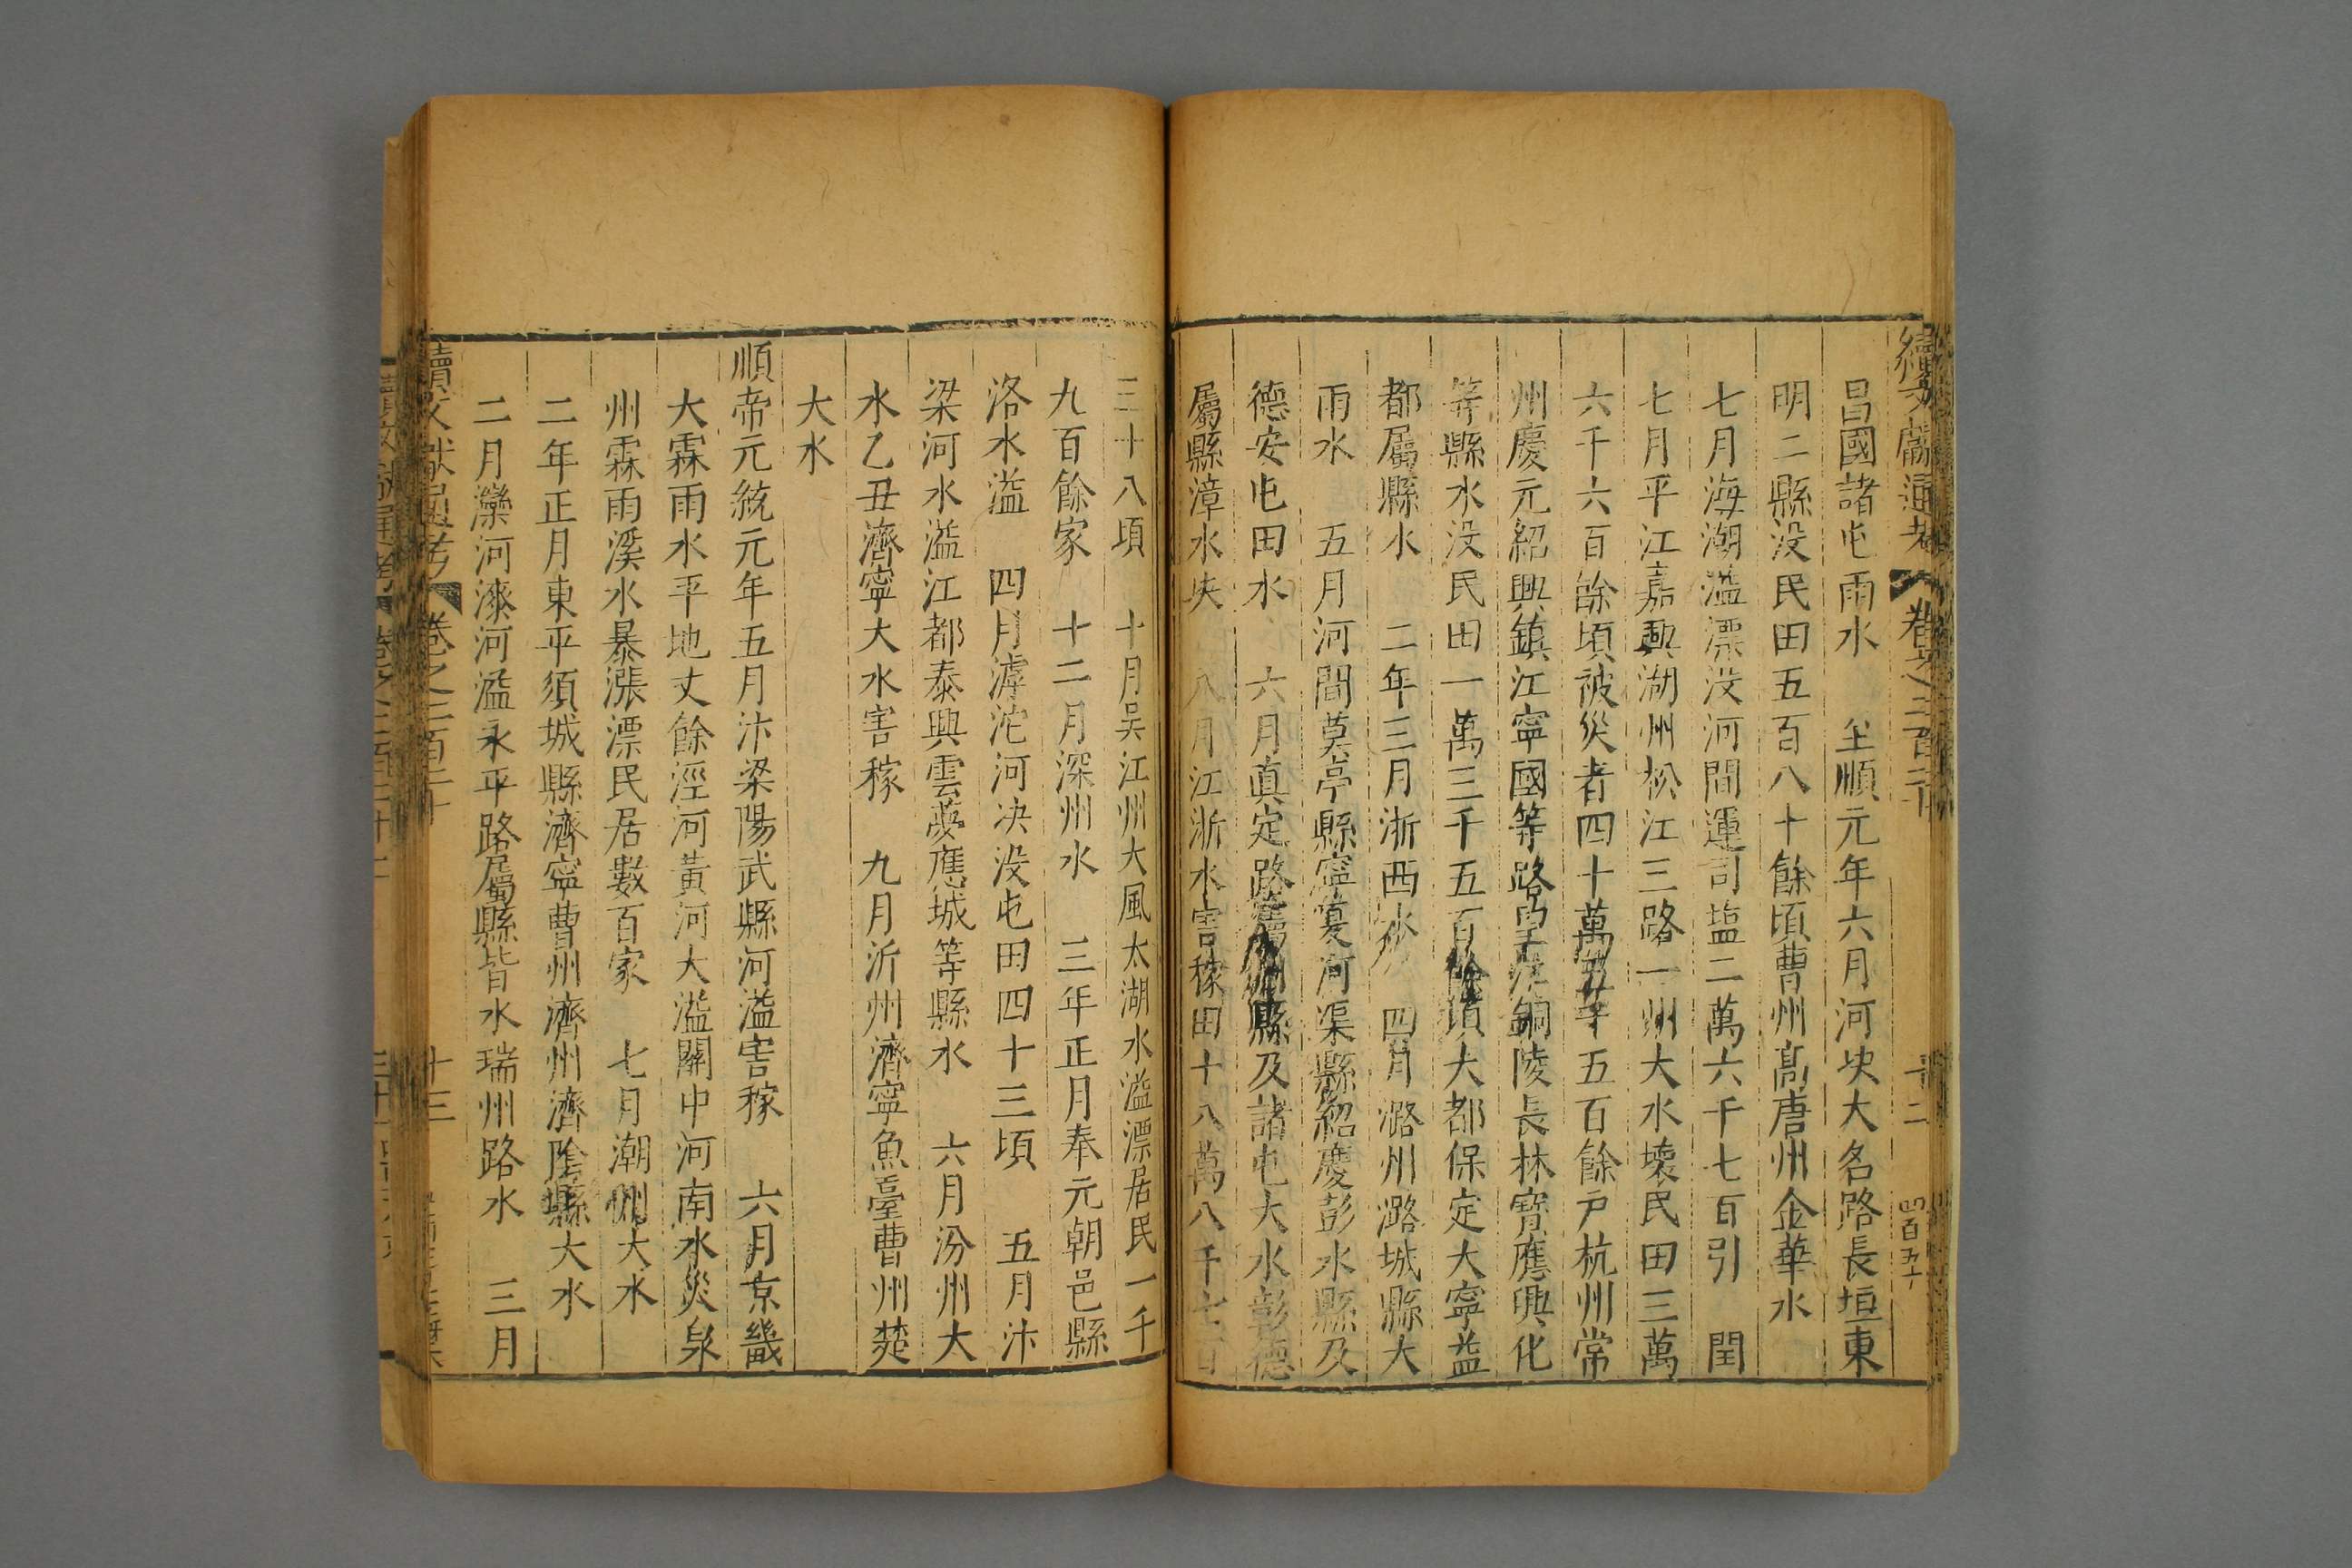 續文獻通考 卷之二百二十 十二 四百五十
昌國諸屯雨水 至順元年六月河決大名路長垣東
明二縣没民田五百八十餘頃曹州高唐州金華水
七月海潮溢漂没河間運司塩二萬六千七百引 閏
七月平江嘉興湖州松江三路一州大水壞民田三萬
六千六百餘頃被災者四十萬五千五百餘戸杭州常
州慶元紹興鎮江寧國等路 銅陵長林寶應興化
等縣水没民田一萬三千五百餘頃大都保定大寧益
都屬縣水 二年三月浙西水 四月潞州潞城縣大
雨水 五月河間莫亭縣寧夏河渠縣紹慶彭水縣及
德安屯田水 六月真定路屬州縣及諸屯大水彰德
屬縣漳水决 八月江浙水害稼田十八萬八千七百
三十八頃 十月吴江州大風太湖水溢漂居民一千
九百餘家 十二月深州水 三年正月奉元朝邑縣
洛水溢 四月滹沱河决没屯田四十三頃 五月汴
梁河水溢江都泰興雲夢應城等縣水 六月汾州大
水乙丑濟寧大水害稼 九月沂州濟寧魚臺曹州楚
大水
順帝元統元年五月汴梁陽武縣河溢害稼 六月京畿
大霖雨水平地丈餘涇河黃河大溢關中河南水災泉
州霖雨溪水暴漲漂民居數百家 七月潮州大水
二年正月東平須城縣濟寧曹州濟州濟陰縣大水
二月灤河漆河溢永平路屬縣皆水瑞州路水 三月
續文獻通考 卷之二百二十 十三